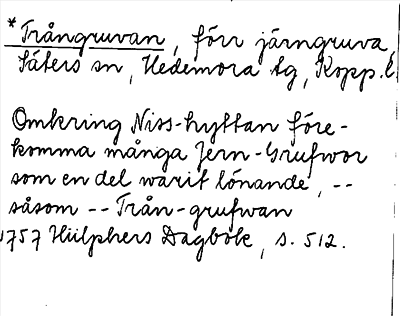 *Trångruvan, förr järngruva,
Säters sn, Hedemora tg, Kopp. l
Omkring Niss-hyttan före-
komma många Jern-Grufwor
som en del warit lönande, --
såsom -- Trån-grufwan
1757 Hülphers Dagbok, s. 512.